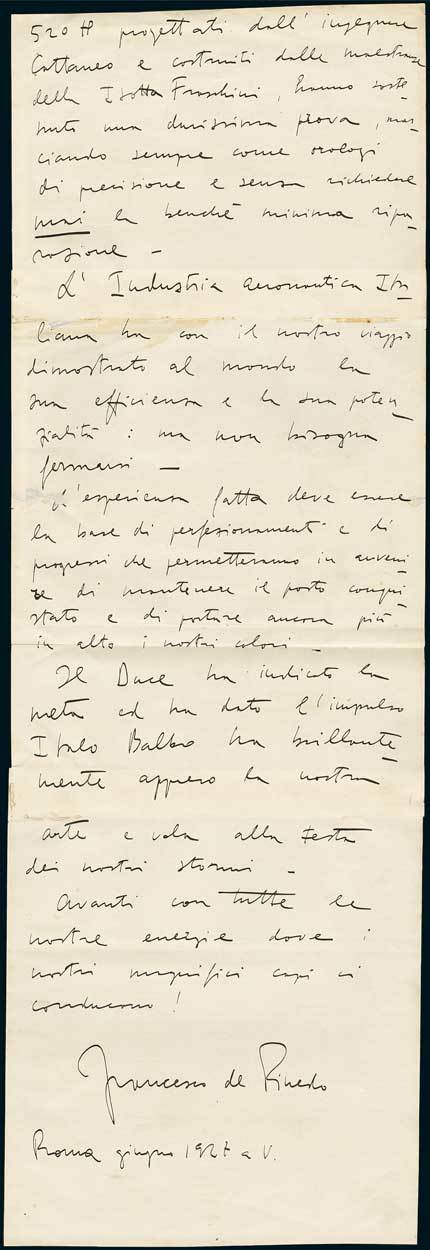 520 HP progettati dall'ingegnere
Cattaneo e costruiti dalle maestranze
della Isotta Fraschini, hanno soste-
nuto una durissima prova, mar-
ciando sempre come orologi
di precisione e senza richiedere
mai la benchè minima ripa-
razione –
L'Industria aeronautica Ita-
liana ha con il nostro viaggio
dimostrato al mondo la
sua efficienza e la sua poten-
zialità: ma non bisogna
fermarsi –
L'esperienza fatta deve essere
la base di perfezionamenti e di
progressi che permetteranno in avveni-
re di mantenere il posto conqui-
stato e di portare ancora più
in alto i nostri colori –
Il Duce ha indicato la
meta ed ha dato l'impulso
Italo Balbo ha brillante-
mente appreso la nostra
arte e vola alla testa
dei nostri stormi –
Avanti con tutte le
nostre energie dove i
nostri magnifici capi ci
conducono!
Francesco de Pinedo
Roma giugno 1927 a V.